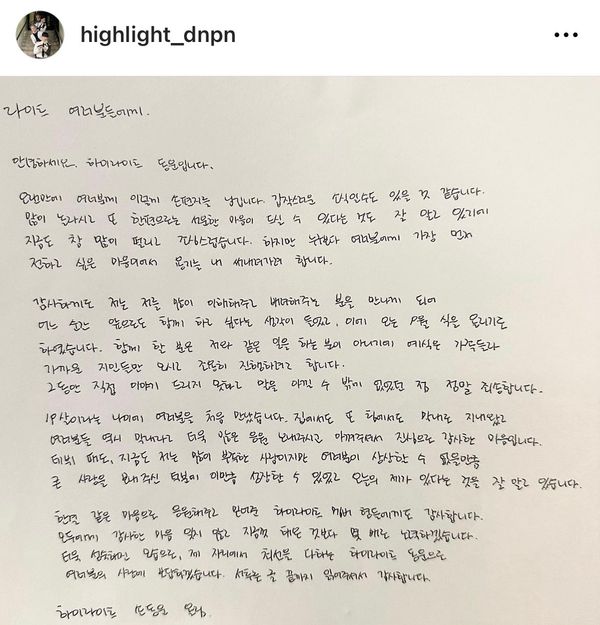 highlight_dnpn
라이트 여러분들에게.
안녕하세요. 하이라이트 동운입니다.
오랜만에 여러분께 이렇게 손편지를 남깁니다. 갑작스러운 소식일수도 있을 것 같습니다.
많이 놀라시고 또 한편으로는 서운한 마음이 드실 수 있다는 것도 잘 알고 있기에
지금도 참 많이 떨리고 조심스럽습니다. 하지만 누구보다 여러분에게 가장 먼저
전하고 싶은 마음이어서 용기를 내 써내려가려 합니다.
감사하게도 저는 저를 많이 이해해주고 배려해주는 분을 만나게 되어
어느 순간 앞으로도 함께 하고 싶다는 생각이 들었고, 이에 오는 9월 식을 올리기로
하였습니다. 함께 할 분은 저와 같은 일을 하는 분이 아니기에 예식은 가족들과
가까운 지인들만 모시고 조용히 진행하려고 합니다.
그동안 직접 이야기 드리지 못하고 말을 아낄 수 밖에 없었던 점 정말 죄송합니다.
19살이라는 나이에 여러분을 처음 만났습니다. 집에서도 또 팀에서도 막내로 지내왔고
여러분들 역시 막내라고 더욱 많은 응원 보내주시고 아껴주셔서 진심으로 감사한 마음입니다.
데뷔 때도, 지금도 저는 많이 부족한 사람이지만 여러분이 상상할 수 없을만큼
큰 사랑을 보내주신 덕분에 이만큼 성장할 수 있었고 오늘의 제가 있다는 것을 잘 알고 있습니다.
한결 같은 마음으로 응원해주고 믿어준 하이라이트 멤버 형들에게도 감사합니다.
모두에게 감사한 마음 잊지 않고 지금껏 해온 것보다 몇 배로 노력하겠습니다.
더욱 성숙해진 모습으로, 제 자리에서 최선을 다하는 하이라이트 동운으로
여러분의 사랑에 보답하겠습니다. 서툰 글 끝까지 읽어주셔서 감사합니다.
하이라이트 손동운 올림.